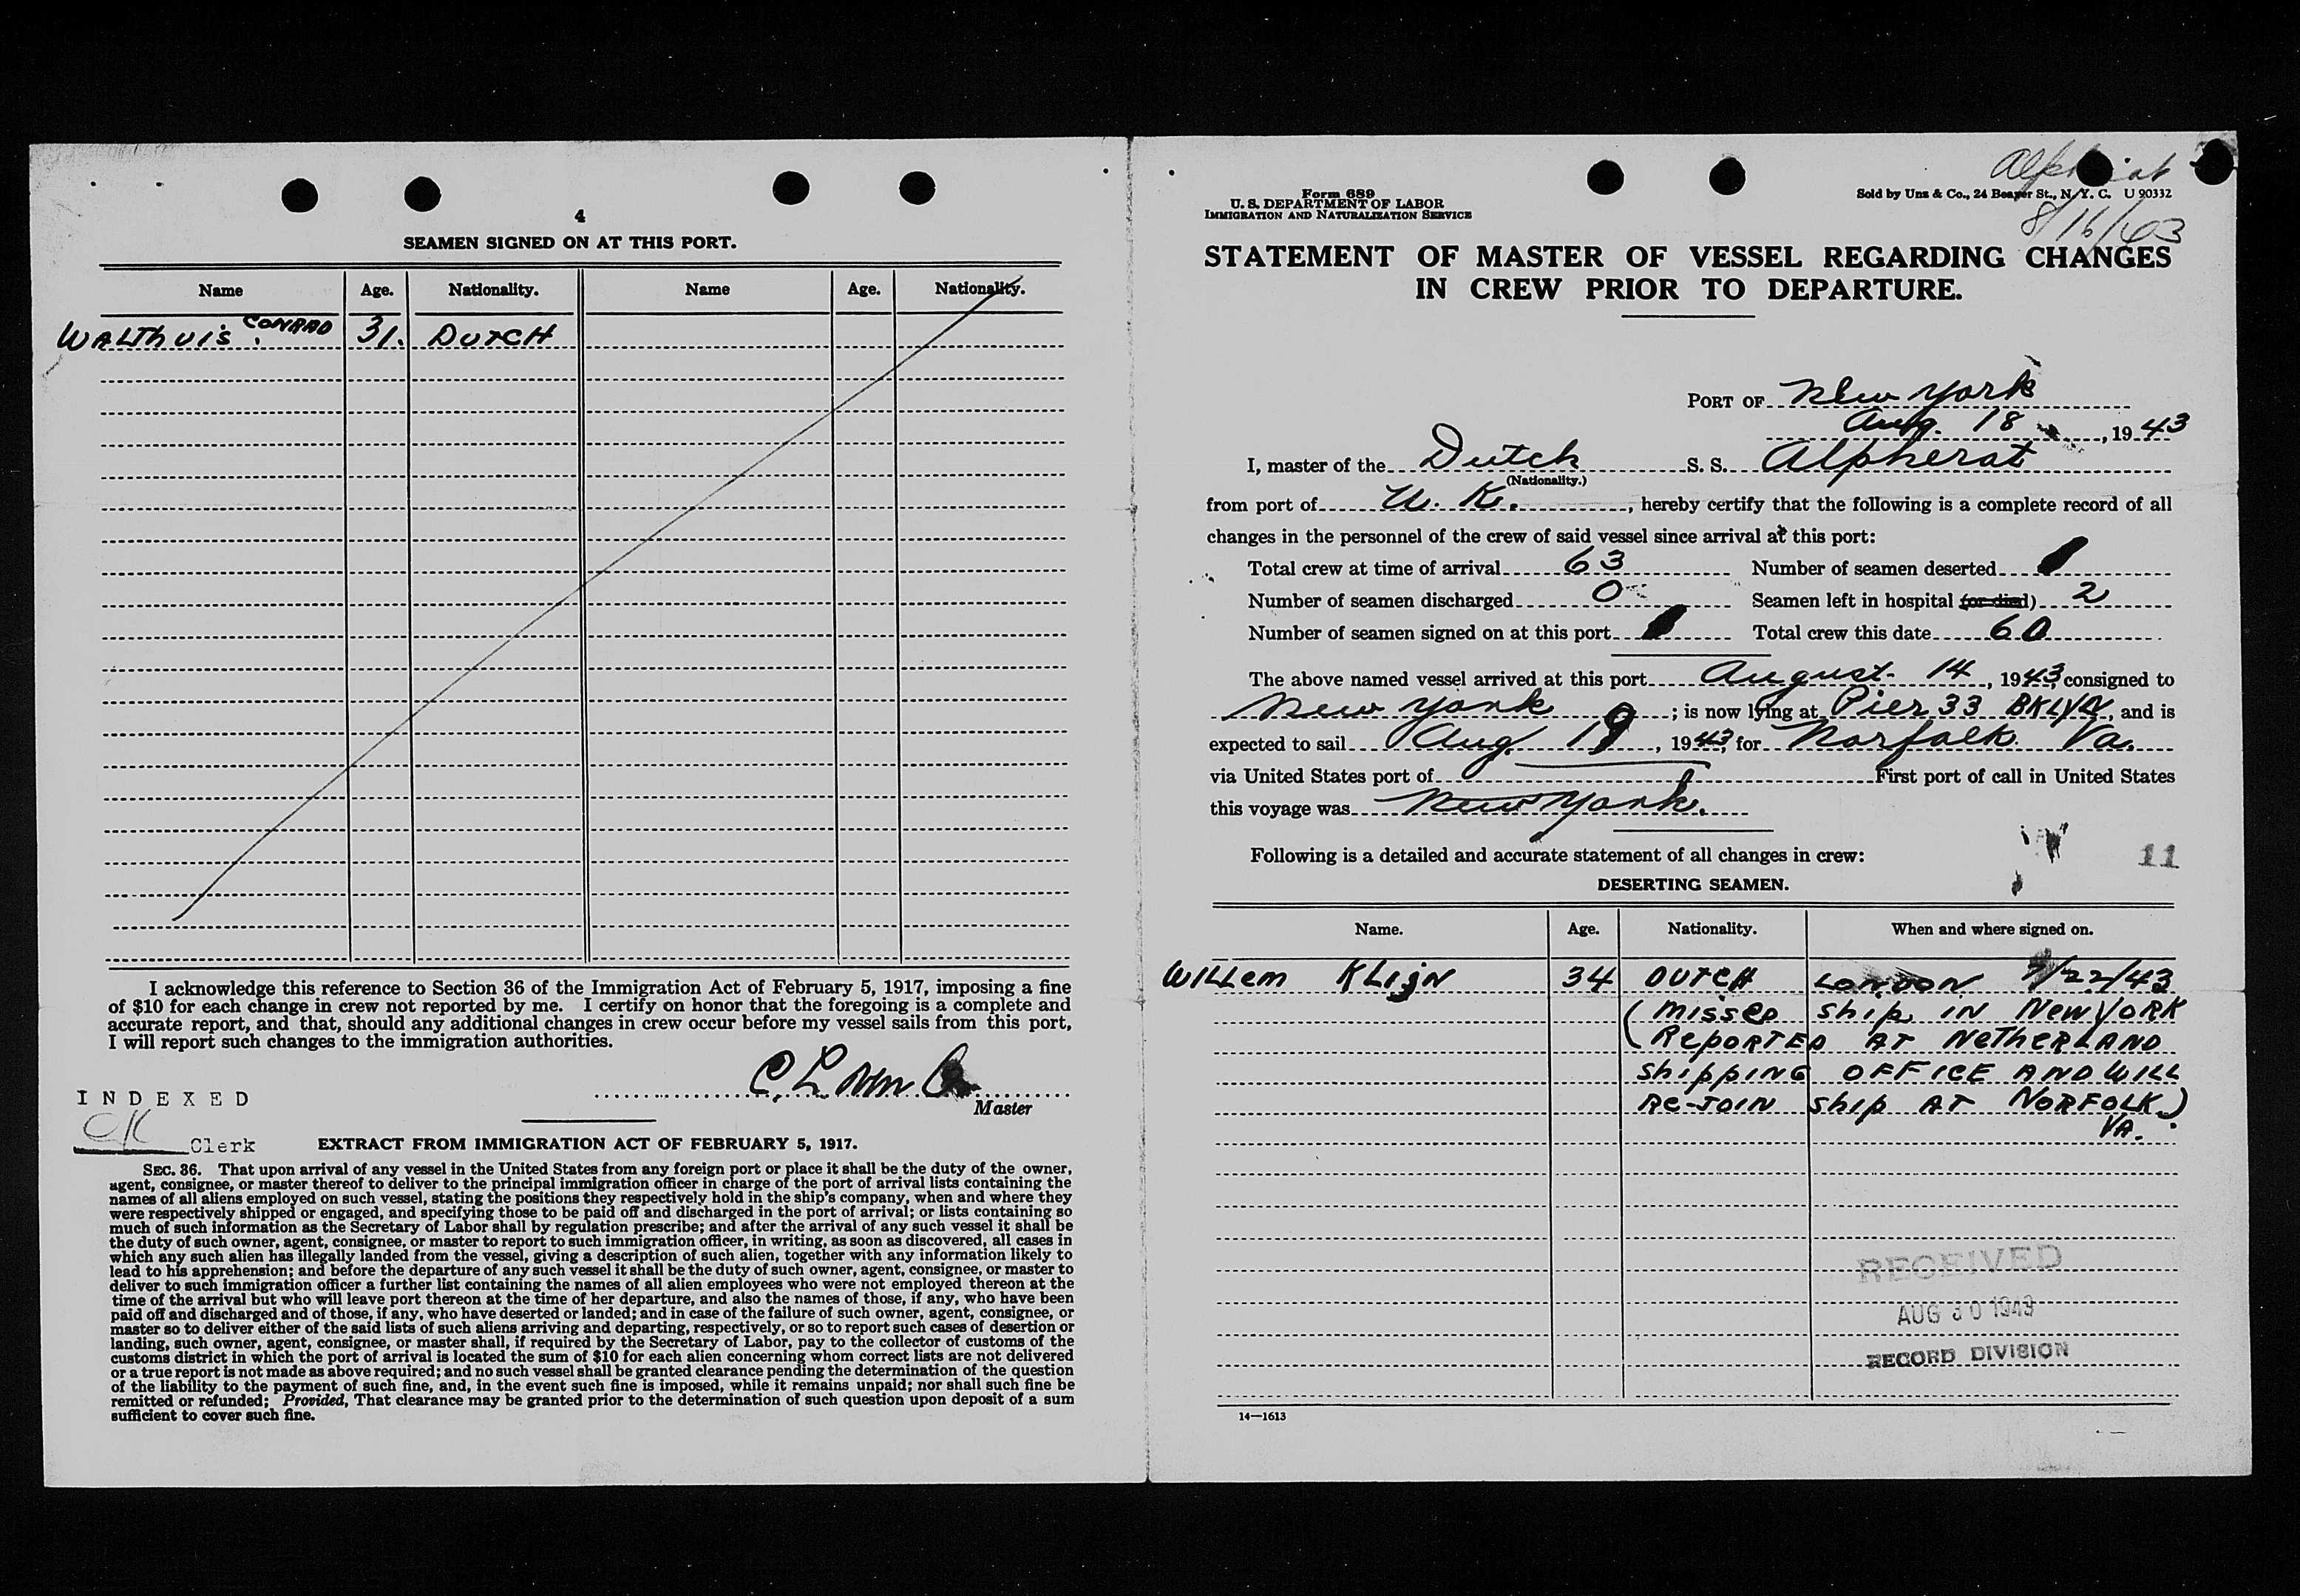 4
SEAMEN SIGNED ON AT THIS PORT.
Name Age. Nationality. Name Age. Nationality.
WALTHUIS. CONRAD 31. DUTCH
I acknowledge this reference to Section 36 of the Immigration Act of February 5, 1917, imposing a fine
of $10 for each change in crew not reported by me. I certify on honor that the foregoing is a complete and
accurate report, and that, should any additional changes in crew occur before my vessel sails from this port,
I will report such changes to the immigration authorities.
Master
INDEXED
Clerk
EXTRACT FROM IMMIGRATION ACT OF FEBRUARY 5, 1917.
SEC. 36. That upon arrival of any vessel in the United States from any foreign port or place it shall be the duty of the owner,
agent, consignee, or master thereof to deliver to the principal immigration officer in charge of the port of arrival lists containing the
names of all aliens employed on such vessel, stating the positions they respectively hold in the ship's company, when and where they
were respectively shipped or engaged, and specifying those to be paid off and discharged in the port of arrival; or lists containing so
much of such information as the Secretary of Labor shall by regulation prescribe; and after the arrival of any such vessel it shall be
the duty of such owner, agent, consignee, or master to report to such immigration officer, in writing, as soon as discovered, all cases in
which any such alien has illegally landed from the vessel, giving a description of such alien, together with any information likely to
lead to his apprehension; and before the departure of any such vessel it shall be the duty of such owner, agent, consignee, or master to
deliver to such immigration officer a further list containing the names of all alien employees who were not employed thereon at the
time of the arrival but who will leave port thereon at the time of her departure, and also the names of those, if any, who have been
paid off and discharged and of those, if any, who have deserted or landed; and in case of the failure of such owner, agent, consignee, or
master so to deliver either of the said lists of such aliens arriving and departing, respectively, or so to report such cases of desertion or
landing, such owner, agent, consignee, or master shall, if required by the Secretary of Labor, pay to the collector of customs of the
customs district in which the port of arrival is located the sum of $10 for each alien concerning whom correct lists are not delivered
or a true report is not made as above required; and no such vessel shall be granted clearance pending the determination of the question
of the liability to the payment of such fine, and, in the event such fine is imposed, while it remains unpaid; nor shall such fine be
remitted or refunded; Provided, That clearance may be granted prior to the determination of such question upon deposit of a sum
sufficient to cover such fine.
Form 689
U. S. DEPARTMENT OF LABOR
IMMIGRATION AND NATURALIZATION SERVICE
Sold by Unz & Co., 24 Beaver St., N. Y. C. U 90332
STATEMENT OF MASTER OF VESSEL REGARDING CHANGES
IN CREW PRIOR TO DEPARTURE.
PORT OF New York
Aug. 18, 1943
I, master of the Dutch S. S. Alpherat
(Nationality.)
from port of U. K., hereby certify that the following is a complete record of all
changes in the personnel of the crew of said vessel since arrival at this port:
Total crew at time of arrival 63 Number of seamen deserted
Number of seamen discharged 0 Seamen left in hospital (or died) 2
Number of seamen signed on at this port Total crew this date 60
The above named vessel arrived at this port August 14, 1943, consigned to
New York; is now lying at Pier 33 BKLYN, and is
expected to sail Aug. 19, 1943, for Norfolk Va.
via United States port of First port of call in United States
this voyage was New York.
Following is a detailed and accurate statement of all changes in crew:
11
DESERTING SEAMEN.
Name. Age. Nationality. When and where signed on.
WILLEM KLIJN 34 DUTCH LONDON 7/22/43
(MISSED Ship IN NEW YORK
(REPORTED AT NETHERLAND
ShippING OFFICE AND WILL
RE-JOIN Ship AT NORFOLK)
VA.
RECEIVED
AUG 30 1943
RECORD DIVISION
14—1613